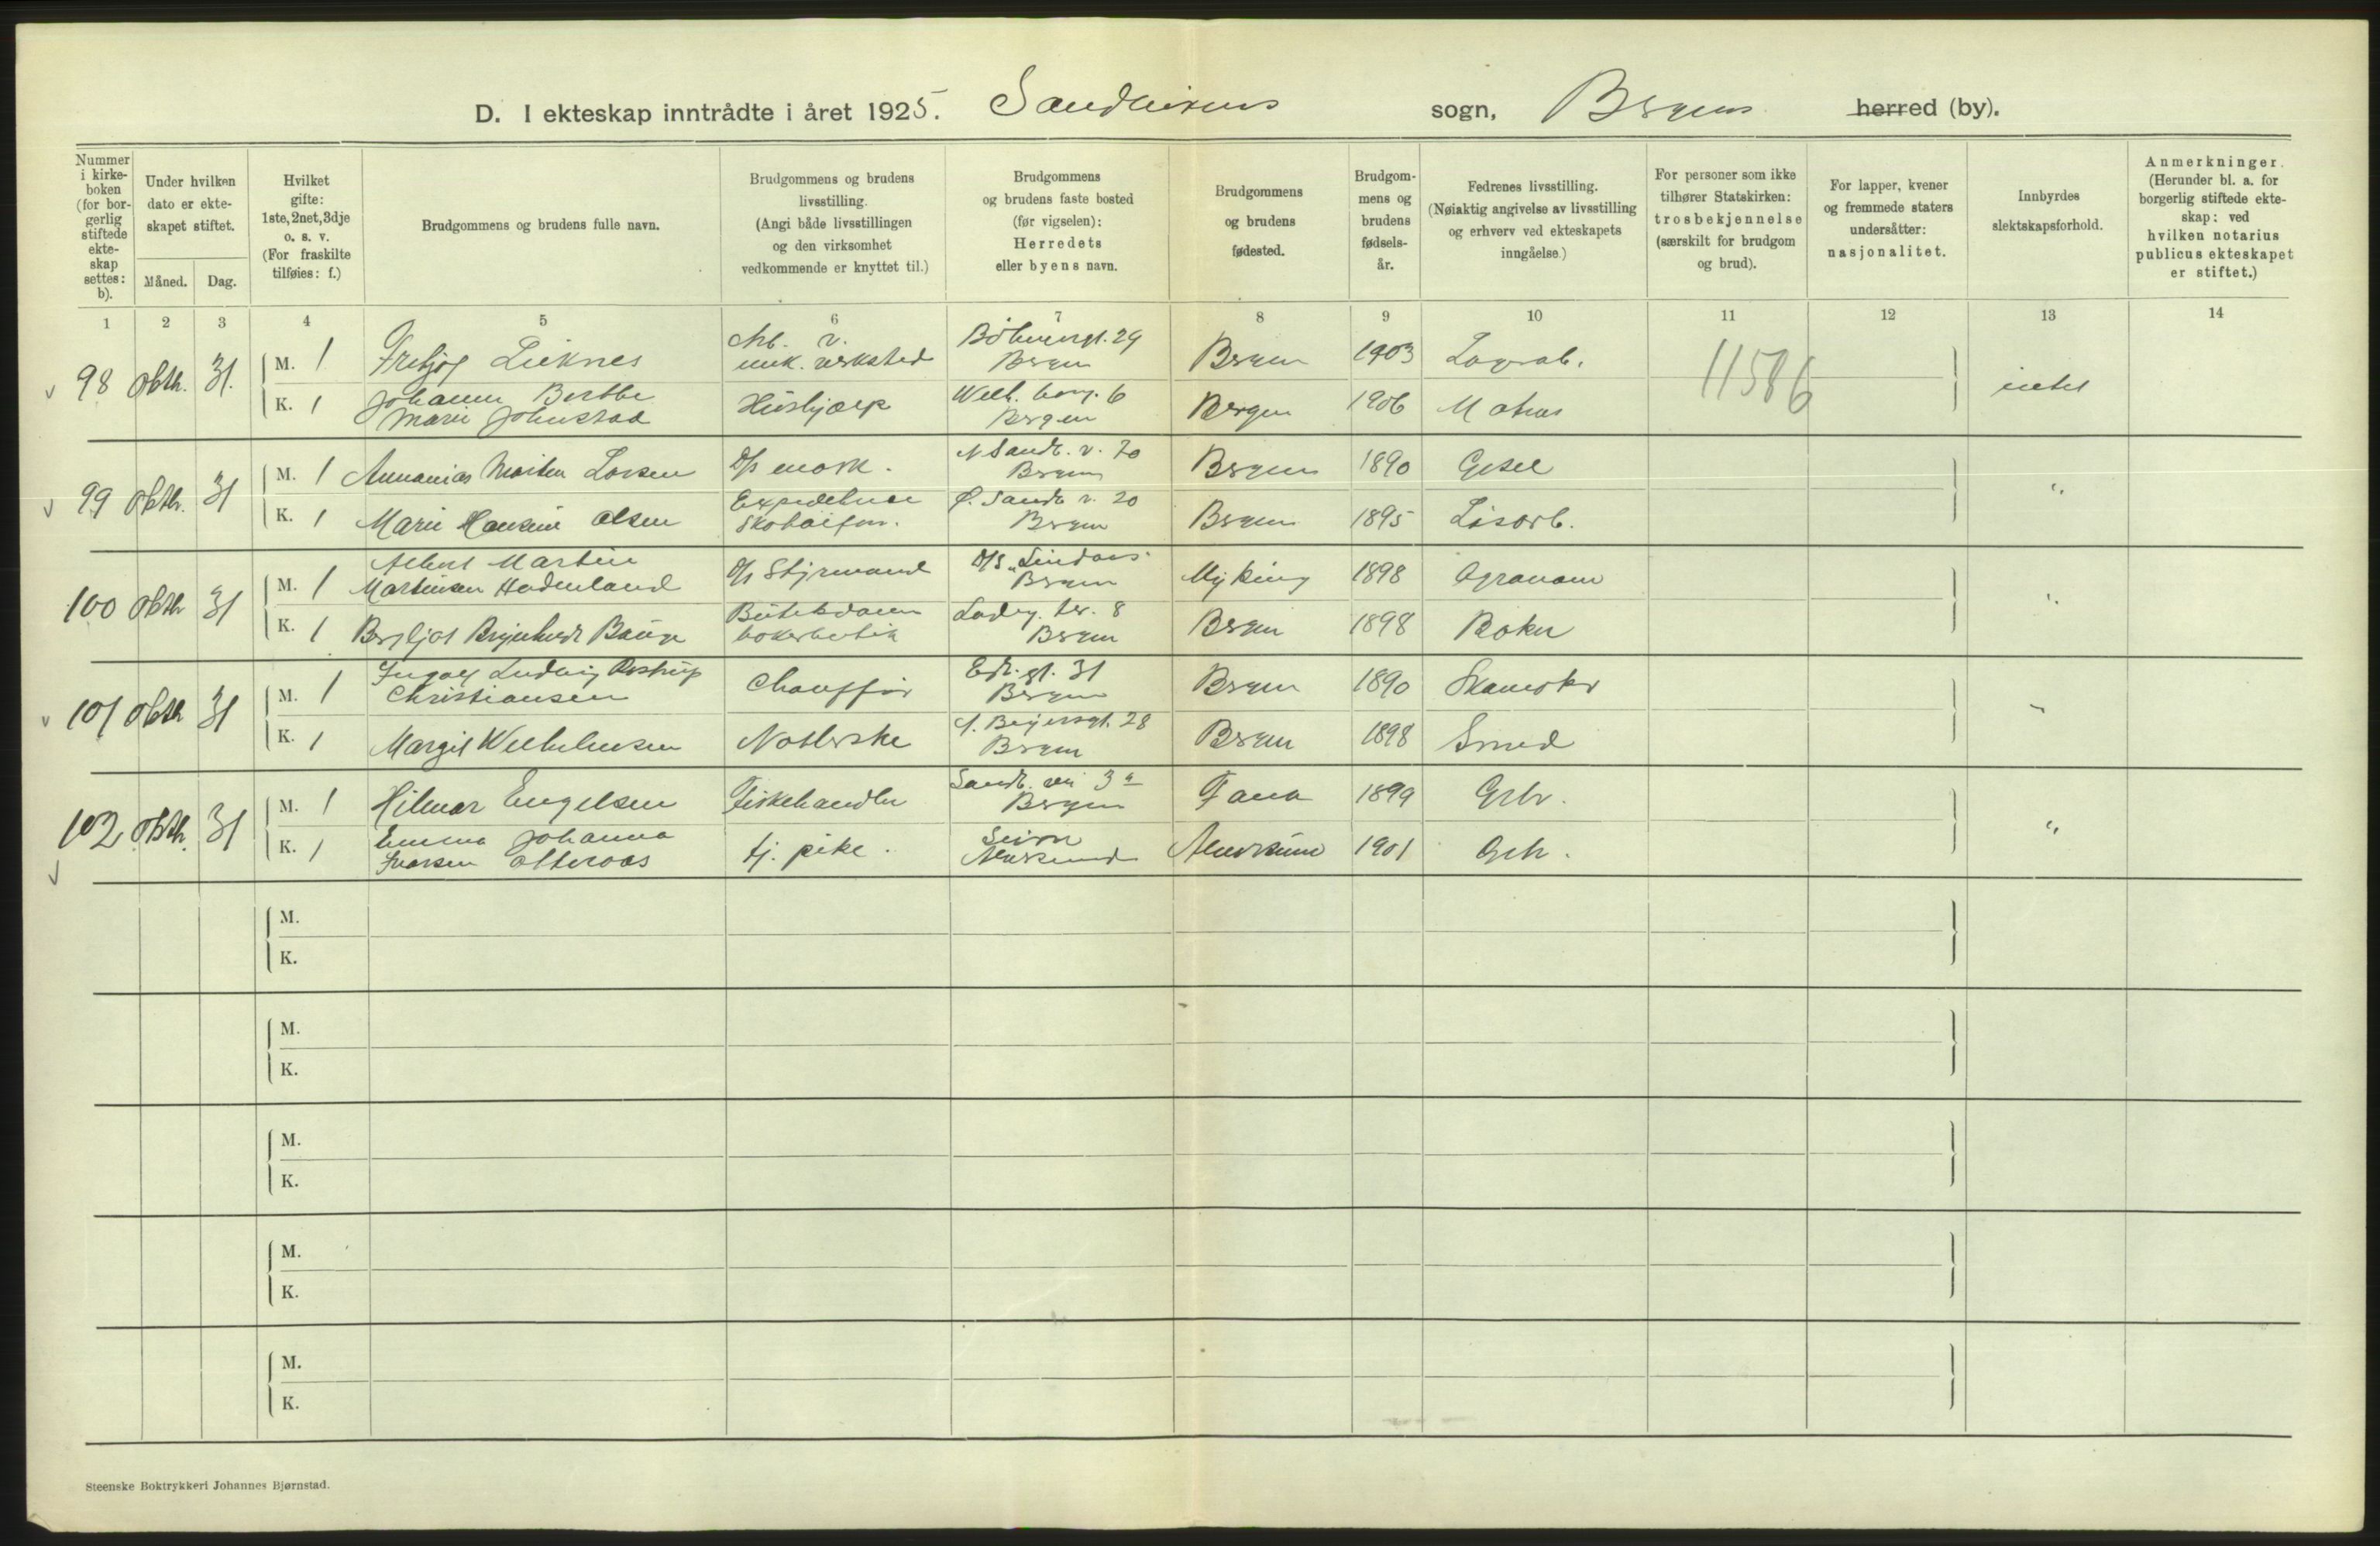 D. I ekteskap inntrådte i året 1925. Sandvikens sogn, Bergens herred (by).
Nummer i kirkeboken (for borgerlig stiftede ekteskap settes: b).
Under hvilken dato er ekteskapet stiftet.
Måned. Dag.
Hvilket gifte: 1ste, 2net, 3dje o. s. v. (For fraskilte tilføies: f.)
Brudgommens og brudens fulle navn.
Brudgommens og brudens livsstilling. (Angi både livsstillingen og den virksomhet vedkommende er knyttet til.)
Brudgommens og brudens faste bosted (før vigselen): Herredets eller byens navn.
Brudgommens og brudens fødested.
Brudgommens og brudens fødselsår.
Fedrenes livsstilling. (Nøiaktig angivelse av livsstilling og erhverv ved ekteskapets inngåelse.)
For personer som ikke tilhører Statskirken: trosbekjennelse (særskilt for brudgom og brud).
For lapper, kvener og fremmede staters undersåtter: nasjonalitet.
Innbyrdes slektskapsforhold.
Anmerkninger. (Herunder bl. a. for borgerlig stiftede ekteskap: ved hvilken notarius publicus ekteskapet er stiftet.)
1 2 3 4 5 6 7 8 9 10 11 12 13 14
98 oktb. 31.
M. 1 Lieknes Arb. v. mek. verksted 29 Bergen Bergen 1903
K. 1 Johanne Berthe Marie Johnstad Hushjælp 6 Bergen Bergen 1906 Matros
11586 intet
99 oktb. 31
M. 1 Annanias Morten Larsen D/s mask. N Sandv. v. 20 Bergen Bergen 1890
K. 1 Marie Hansine Olsen Ø. Sandv. v. 20 Bergen Bergen 1895 Løsarb.
"
100 oktb 31
M. 1 Albert Martin Martinsen D/s Styrmand D/S "Lindaas" Bergen Myking 1898 Agronom
K. 1 Bergljot ter. 8 Bergen Bergen 1898 Baker
"
101 oktb 31
M. 1 Ludvig Christiansen Chauffør 31 Bergen Bergen 1890 Skomaker
K. 1 Margit Wilhelmsen 28 Bergen Bergen 1898 Smed
"
102 oktb. 31
M. 1 Hilmar Engelsen Fiskehandler Sandv. vei 3a Bergen Fana 1899 Grbr.
K. 1 Emma Johanna Ivarsen tj. pike. Seim Alversund Alversund 1901 Grbr.
"
M.
K.
M.
K.
M.
K.
M.
K.
M.
K.
Steenske Boktrykkeri Johannes Bjørnstad.